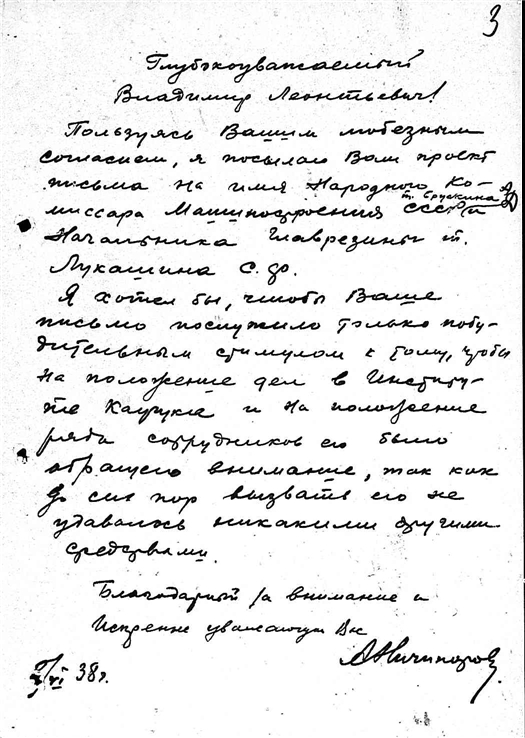 3
Глубокоуважаемый
Владимир Леонтьевич!
Пользуясь Вашим любезным
согласием, я посылаю Вам проект
письма на имя Народного Ко-
т. Брускина
миссара Машиностроения СССР и
Начальника Главрезины т.
Лукашина С. Ф.
Я хотел бы, чтобы Ваше
письмо послужило только побу-
дительным стимулом к тому, чтобы
на положение дел в Институ-
те Каучука и на положение
ряда сотрудников его было
обращено внимание, так как
до сих пор вызвать его не
удавалось никакими другими
средствами.
Благодарный за внимание и
Искренне уважающий Вас
АНичипоров
VI 38 г.